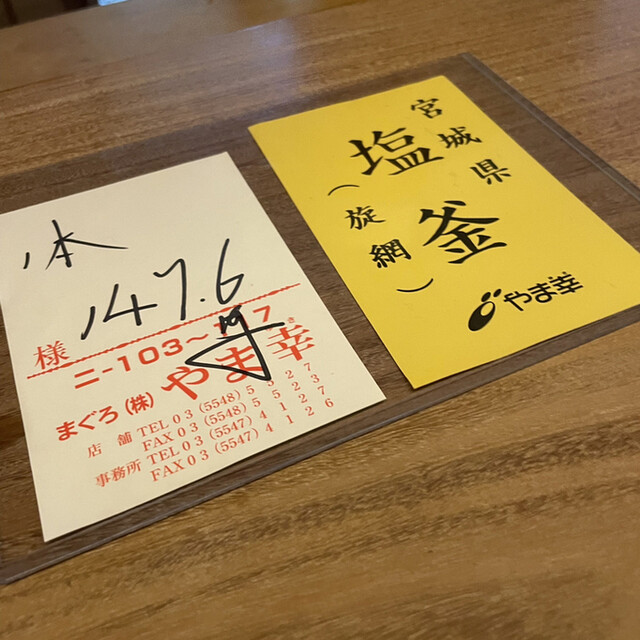 1本
147.6
様
ニ-103~
まぐろ(株)やま幸
店舗 TEL 03 (5548) 5327
FAX 03 (5548) 5237
事務所 TEL 03 (5547) 4127
FAX 03 (5547) 4126
宮城県
塩釜
(旋網)
やま幸